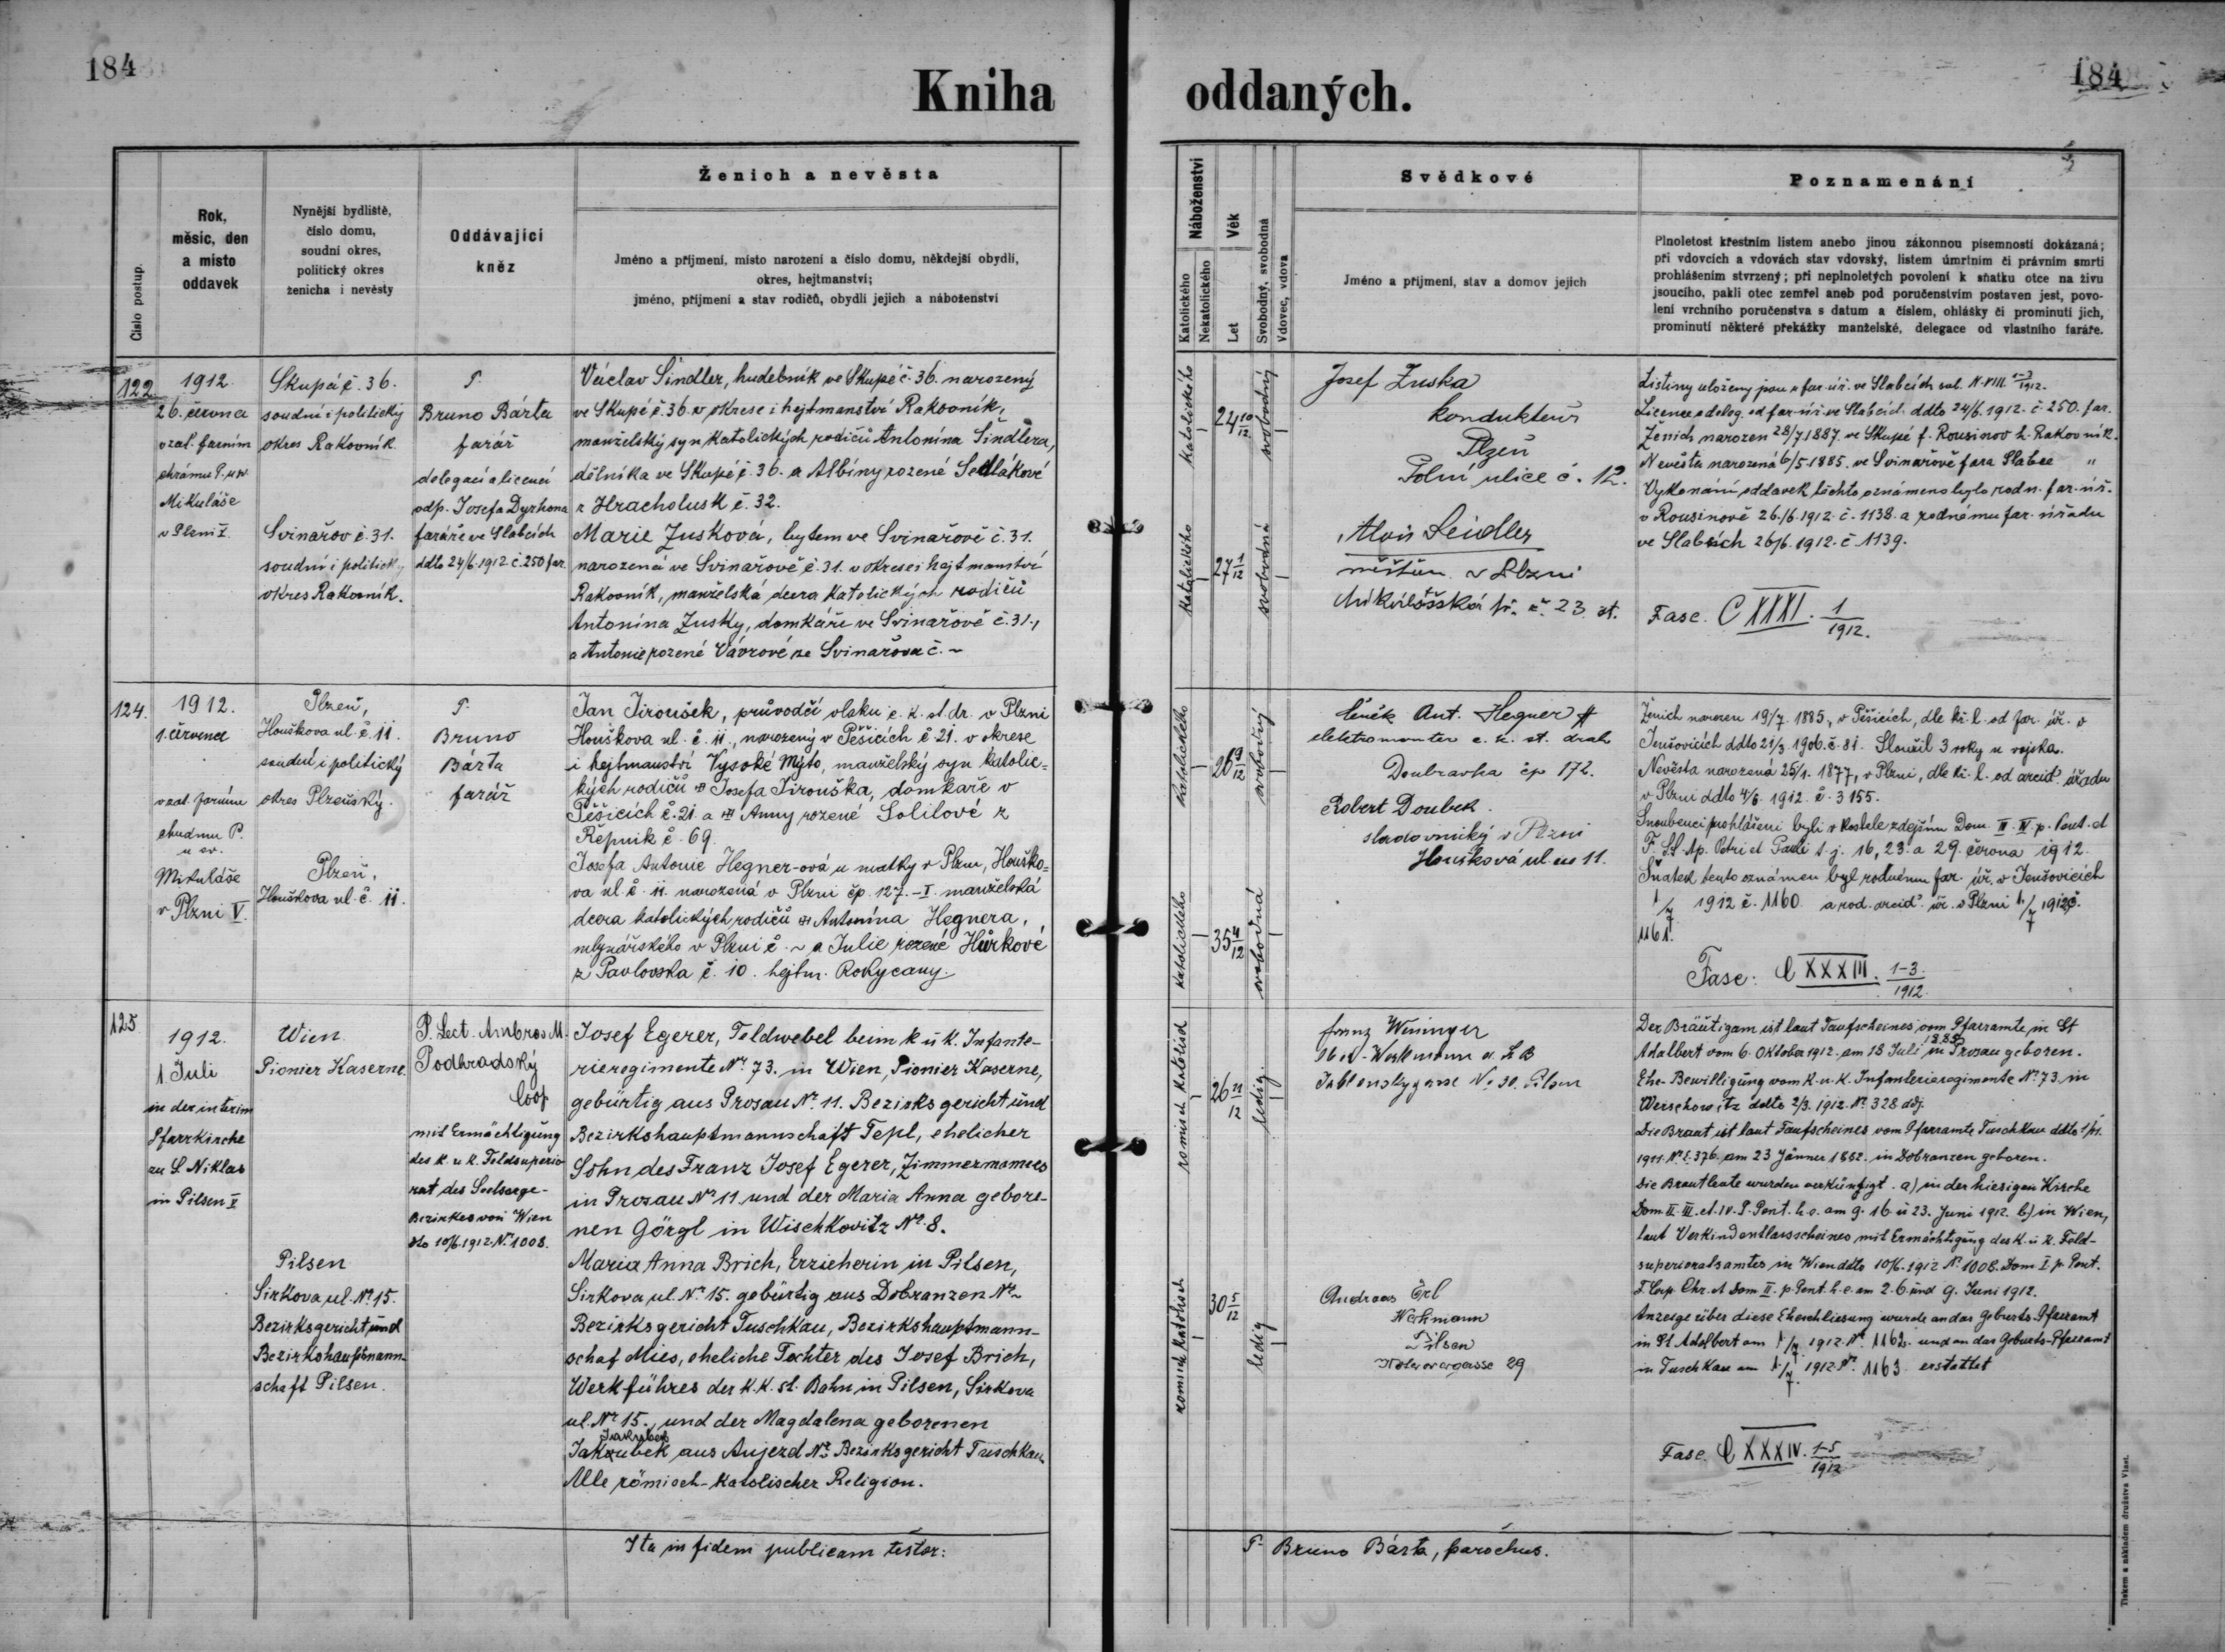 184
184
Kniha oddaných.
Číslo postup.
Rok,
měsíc, den
a místo
oddavek
Nynější bydliště,
číslo domu,
soudní okres,
politický okres
ženicha i nevěsty
Oddávající
kněz
Ženich a nevěsta
Jméno a příjmení, místo narození a číslo domu, někdejší obydlí,
okres, hejtmanství;
jméno, příjmení a stav rodičů, obydlí jejich a náboženství
Náboženství
Katolického
Nekatolického
Věk
Let
Svobodný, svobodná
Vdovec, vdova
Svědkové
Jméno a příjmení, stav a domov jejich
Poznamenání
Plnoletost křestním listem anebo jinou zákonnou písemností dokázaná;
při vdovcích a vdovách stav vdovský, listem úmrtním či právním smrti
prohlášením stvrzený; při neplnoletých povolení k sňatku otce na živu
jsoucího, pakli otec zemřel aneb pod poručenstvím postaven jest, povo-
lení vrchního poručenstva s datum a číslem, ohlášky či prominutí jich,
prominutí některé překážky manželské, delegace od vlastního faráře.
122
1912
26. června
v zat. farním
chrámu P. u sv.
Mikuláše
v Plzni V.
Skupá č. 36.
soudní i politický
okres Rakovník
Svinařov č. 31.
soudní i politický
okres Rakovník.
P.
Bruno Bárta
farář
delegací a licencí
odp. Josefa Dyrhona
faráře ve Slabcích
ddto 24/6. 1912 č. 250 far.
Václav Šindler, hudebník ve Skupé č. 36. narozený
ve Skupé č. 36. v okrese i hejtmanství Rakovník,
manželský syn katolických rodičů Antonína Šindlera,
dělníka ve Skupé č. 36. a Albíny rozené Sedlákové
z Hracholusk č. 32.
Marie Zusková, bytem ve Svinařově č. 31.
narozená ve Svinařově č. 31. v okrese i hejtmanství
Rakovník, manželská dcera katolických rodičů
Antonína Zusky, domkáře ve Svinařově č. 31.,
a Antonie rozené Vávrové ze Svinařova č. ~
katolického
24 10/12
svobodný
katolického
27 1/12
svobodná
Josef Zuska
kondukteur
Plzeň
Polní ulice č. 12.
Alois Seidler
měšťan v Plzni
Mikulášská tř. č. 23.
Listiny uloženy jsou u far. úř. ve Slabcích sub. N. VIII. 1-3/1912.
Licence a deleg. od far. úř. ve Slabcích ddto 24/6. 1912. č. 250. far.
Ženich narozen 28/7 1887. ve Skupé f. Rousinov h. Rakovník.
Nevěsta narozená 6/5 1885. ve Svinařově fara Slabce "
Vykonání oddavek těchto oznámeno bylo rodn. far. úř.
v Rousinově 26./6. 1912. č. 1138. a rodnému far. úřadu
ve Slabcích 26/6. 1912. č. 1139.
Fasc. CXXXI. 1/1912.
124.
1912.
1. července
v zat. farním
chrámu P.
u sv.
Mikuláše
v Plzni V.
Plzeň,
Houškova ul. č. 11.
soudní i politický
okres Plzeňský.
Plzeň,
Houškova ul. č. 11.
P.
Bruno
Bárta
farář
Jan Jiroušek, průvodčí vlaku c. k. st. dr. v Plzni
Houškova ul. č. 11., narozený v Pěšicích č 21. v okrese
i hejtmanství Vysoké Mýto, manželský syn katolic=
kých rodičů Josefa Jirouška, domkaře v
Pěšicích č. 21. a Anny rozené Solilové z
Řepnik č. 69.
Josefa Antonie Hegner-ová u matky v Plzni, Houško=
va ul. č. 11. narozená v Plzni čp. 127.-I. manželská
dcera katolických rodičů Antonína Hegnera,
mlynářského v Plzni č. ~ a Julie rozené Hůrkové
z Pavlovska č. 10. hejtm. Rokycany.
katolického
26 9/12
svobodný
katolického
35 4/12
svobodná
Ant. Hegner
elektromonter c. k. st. drah
Doubravka čp 172.
Robert Doubek.
sladovnický v Plzni
Houšková ul. 11.
Ženich narozen 19/7. 1885, v Pěšicích, dle kř. l. od far. úř. v
Jenšovicích ddto 21/3. 1906. č. 81. Sloužil 3 roky u vojska.
Nevěsta narozená 25/1. 1877, v Plzni, dle kř. l. od arcid. úřadu
v Plzni ddto 4/6. 1912. č. 3155.
Snoubenci prohlášeni byli v kostele zdejším Dom. III. IV. p. Pent. et
F. SS. Ap. Petri et Pauli t. j. 16, 23. a 29. června 1912.
Sňatek tento oznámen byl rodnému far. úř. v Jenšovicích
1/7 1912 č. 1160 a rod. arcid. úř. v Plzni 1/7 1912 č.
1161.
Fasc: CXXXIII. 1-3./1912.
125
1912.
1. Juli
in der interim
Pfarrkirche
zu S. Niklas
in Pilsen V
Wien
Pionier Kaserne.
Pilsen
Sirkova ul. Nº. 15.
Bezirksgericht und
Bezirkshauptmann-
schaft Pilsen.
P. Lect. Ambros M.
Podhradský
Coop
mit Ermächtigung
des k. u. k. Feldsuperio-
rat des Seelsorge-
Bezirkes von Wien
dto 10/6. 1912. Nº 1008.
Josef Egerer, Feldwebel beim k u k. Infante-
rieregimente Nº 73. in Wien, Pionier Kaserne,
gebürtig aus Prosau Nº. 11. Bezirksgericht und
Bezirkshauptmannschaft Tepl, ehelicher
Sohn des Franz Josef Egerer, Zimmermannes
in Prosau Nº 11. und der Maria Anna gebore-
nen Görgl in Wischkovitz Nº. 8.
Maria Anna Brich, Erzieherin in Pilsen,
Sirkova ul. Nº. 15. gebürtig aus Dobranzen Nº ~
Bezirksgericht Tuschkau, Bezirkshauptmann-
schaf Mies, eheliche Tochter des Josef Brich,
Werkführes der K.K. st. Bahn in Pilsen, Sirkova
ul. Nº 15., und der Magdalena geborenen
Jakubek
Jakubek aus Aujezd Nº. Bezirksgericht Tuschkau.
Alle römisch-katolischer Religion.
romisch katolisch
26 11/12
ledig
romisch katolisch
30 5/12
ledig
Franz Weininger
Ober-Werkmann
Jablonskygasse No 30. Pilsen
Andreas Erl
Werkmann
Pilsen
29
Der Bräutigam ist laut Taufscheines vom Pfarramte in St
Adalbert vom 6. Oktober 1912. am 18 Juli 1885 in Prosau geboren.
Ehe-Bewilligung vom K. u. K. Infanterieregimente Nº 73. in
Werschowitz ddto 2/3. 1912. Nº 328 adj.
Die Braut ist laut Taufscheines vom Pfarramte Tuschkau ddto 1/11.
1911. Nº E. 376. am 23 Jänner 1882. in Dobranzen geboren.
Die Brautleute wurden verkündigt. a) in der hiesigen Kirche
Dom. II. III. et. IV. P. Pent. h. e. am 9. 16 u 23. Juni 1912. b) in Wien,
laut Verkündentlassscheines mit Ermächtigung des K. u. K. Feld-
superioratsamtes in Wien ddto 10/6. 1912 Nº 1008. Dom I. p. Pent.
F. Corp. Chr. et Dom II. p. Pent. h. e. am 2. 6. und 9. Juni 1912.
Anzeige über diese Eheschliesung wurde an das Geburts-Pfarramt
in St Adalbert am 1/7 1912. Nº. 1162. und an das Geburts-Pfarramt
in Tuschkau am 1/7. 1912. Nº. 1163. erstattet
Fasc. CXXXIV. 1-5/1912
Ita in fidem publicam testor:
P. Bruno Bárta, parochus.
Tiskem a nákladem družstva Vlast.